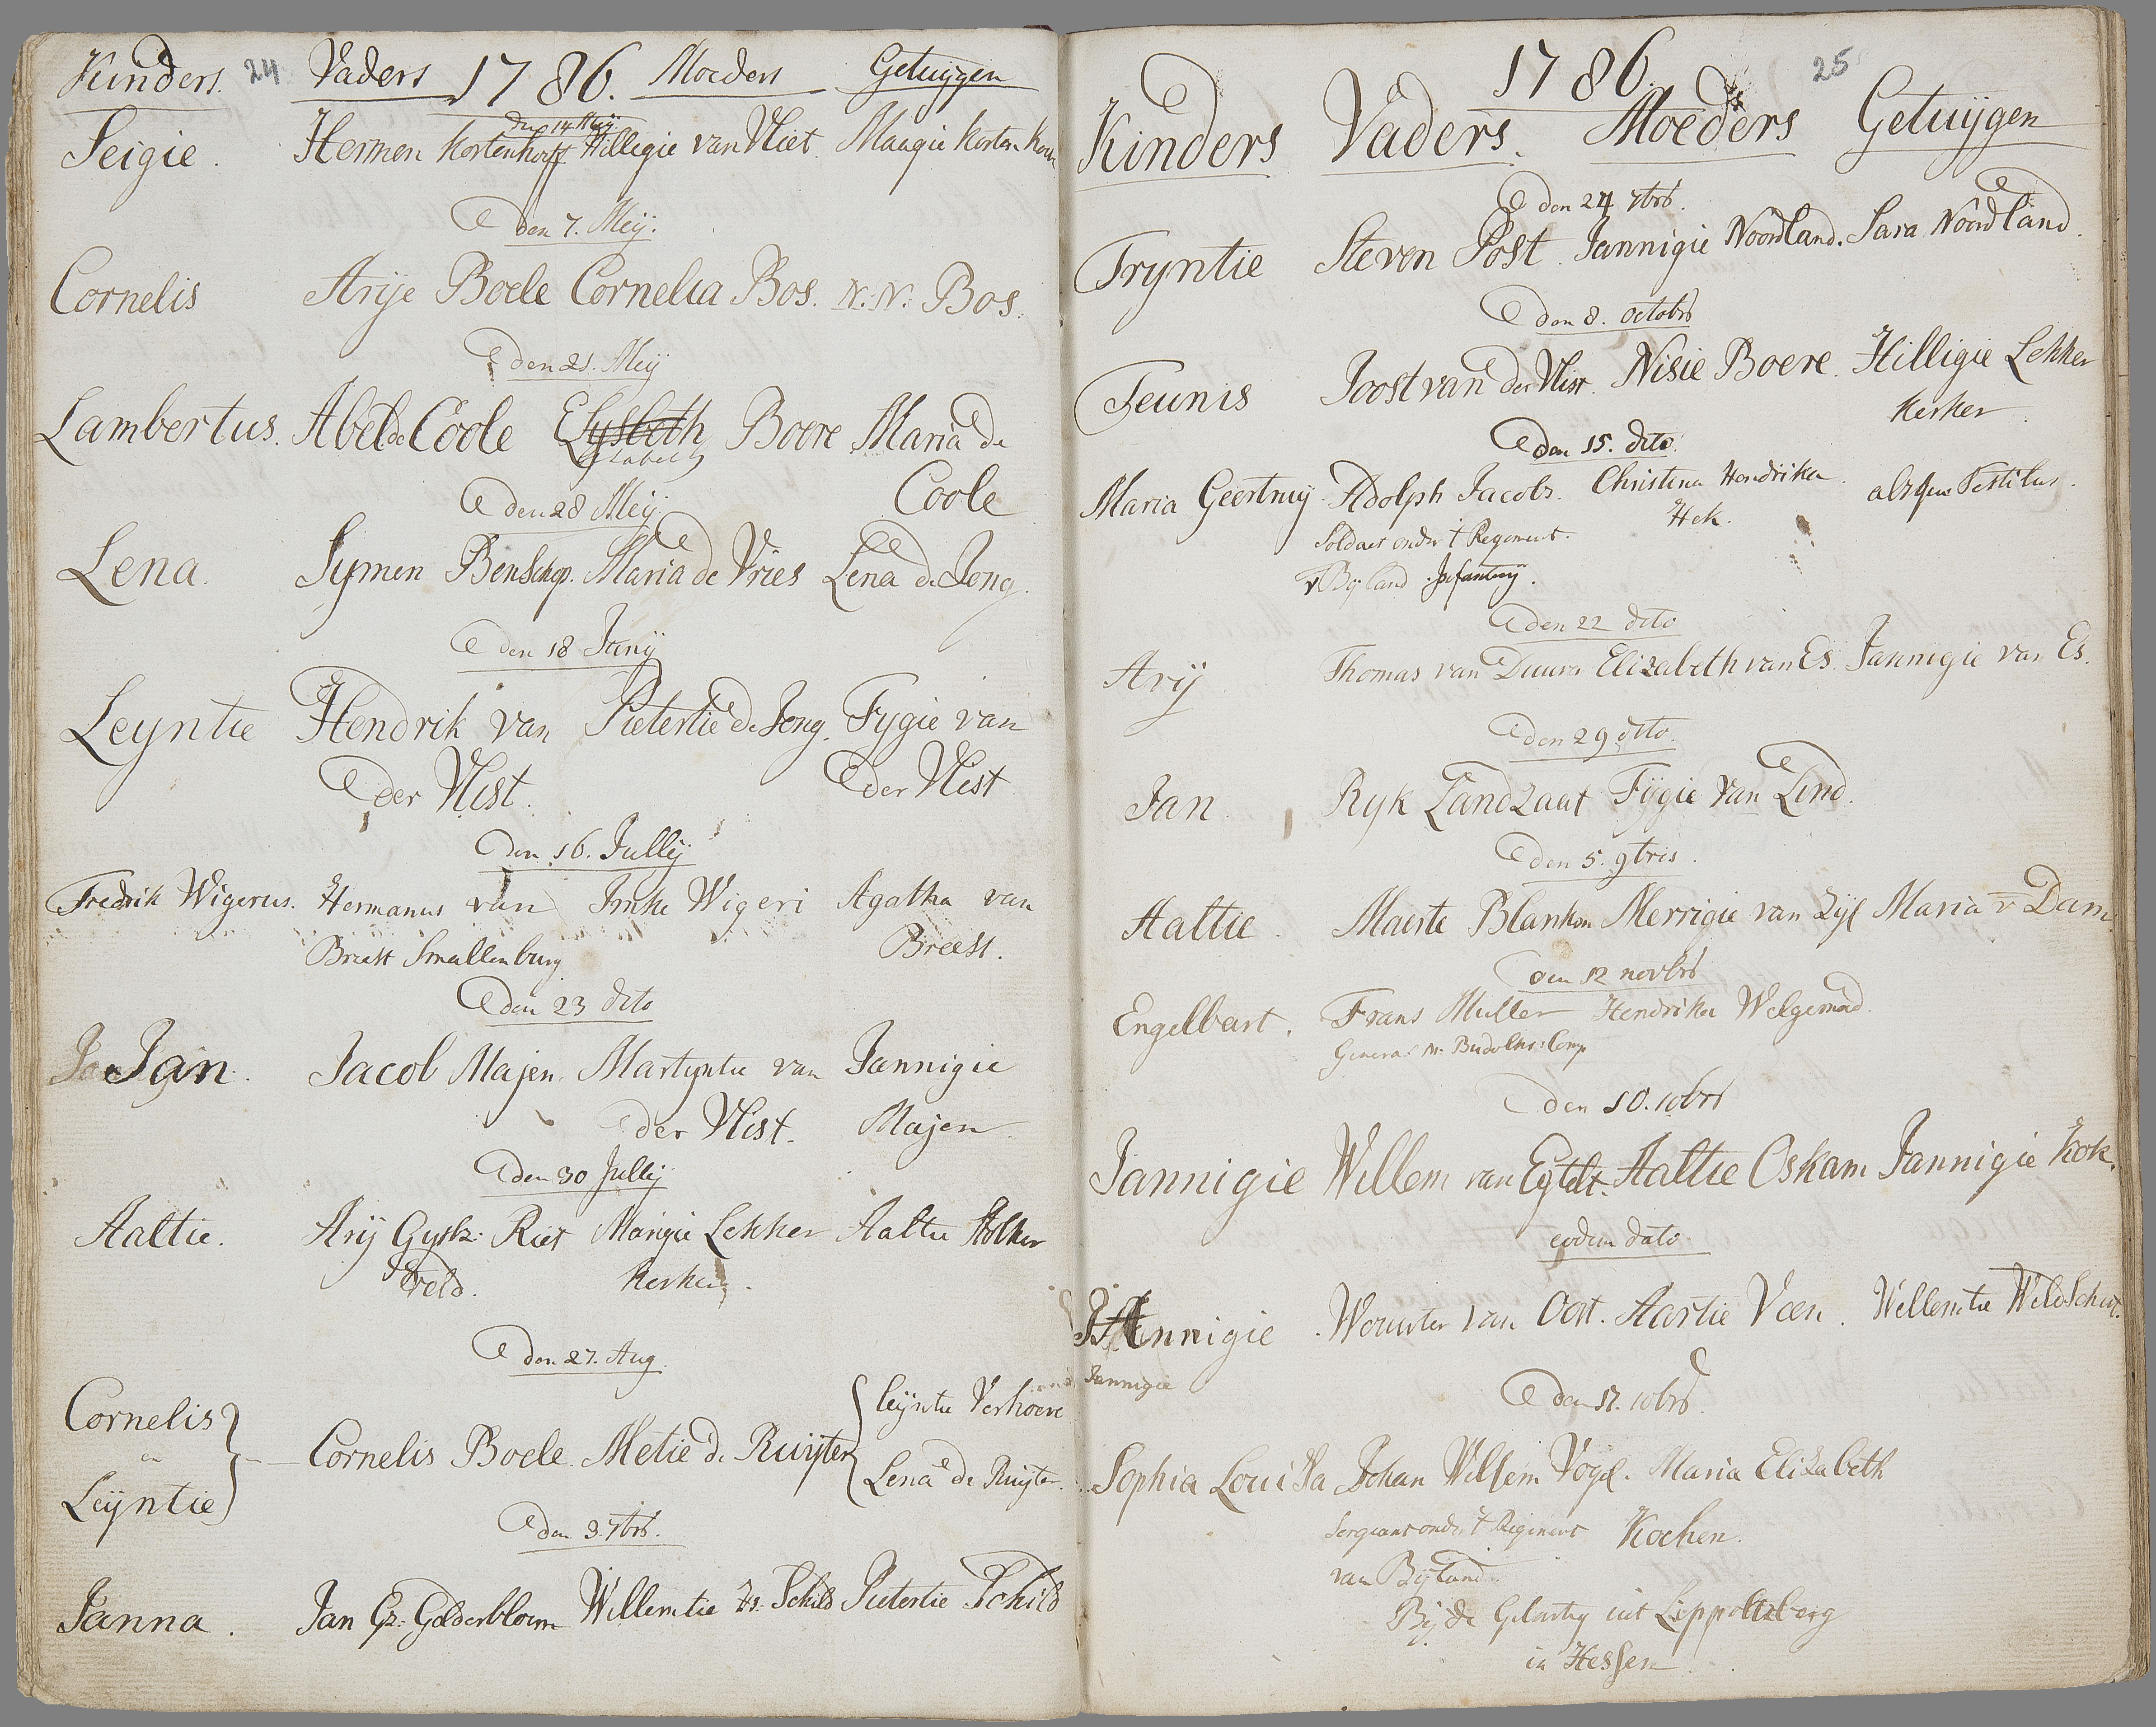 Kinders. 24 Vaders 1786. Moeders Getuijgen
den 14 Meij
Seigie. Hermen Kortenhorff Willigie van Vliet. Maagie Korten
den 7. Meij.
Cornelis Arije Boele Cornelia Bos. N:N: Bos.
den 21. Meij
Lambertus. Abel de Coole Elysbeth Boere Maria de
Coole
den 28 Meij
Lena. Symen Benschop. Maria de Vries Lena de Jong.
den 18 Junij
Leyntie Hendrik van Pietertie de Jong. Fygie van
der Vlist. der Vlist
den 16. Jullij
Fredrik Wigerus. Hermanus van Imke Wigeri Agatha van
Breest Smallenburg Breest.
den 23 dito
Jan. Jacob Majen. Martyntie van Jannigie
der Vlist. Majen
den 30 Jullij
Aaltie. Arij Gysb: Riet Marigie Lekker Aaltie Stolker
Veld. kerker.
den 27. Aug.
Cornelis leijntie Verhoeve
en Cornelis Boele. Metie de Ruijter
Leijntie Lena de Ruijter.
den 3. 7brs.
Janna. Jan Gz: Gelderbloem Willemtie Schild Pietertie Schild
1786. 25
Kinders Vaders. Moeders Getuijgen
den 24. 7brs.
Tryntie Steven Post. Jannigie Noordland. Sara Noordland.
den 8. octobrs
Teunis Joost van der Vlist. Nisie Boere. Hilligie Lekker
kerker.
den 15. dito.
Maria Geertruij. Adolph Jacobs. Christina Hendrika absque Testibus.
Hek.
Soldaet onder t Regement.
v Byland Infantery.
den 22 dito
Arij Thomas van Duuren Elizabeth van Es. Jannigie van Es.
den 29 dito.
Jan. Ryk Landzaat Fygie van Lind.
den 5. 9bris.
Aaltie. Maerte Blanken Merrigie van Zijl Maria v Dam
den 12 novbrs
Engelbart. Frans Muller Hendrika Welgemoed.
Generaal Comp
den 10. 10brs
Jannigie Willem van Eyteh. Aaltie Oskam Jannigie Kok.
eodem dato.
Annigie. Wouter van Oort. Aartie Veen. Willemtie Wildschut.
Jannigie
den 17. 10brs.
Sophia Louisa Johan Willem Vogel. Maria Elizabeth
Sergeant onder t Regiment Kochen.
van Byland.
Bij de uit Lippoltsberg
in Hessen.